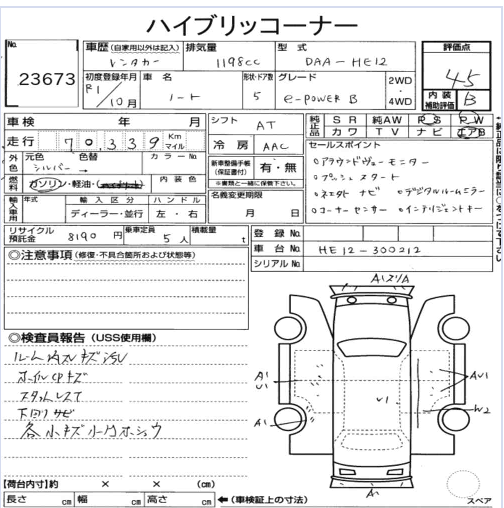 ハイブリッコーナー
No. 23673
車歴 (自家用以外は記入) レンタカー
排気量 1198cc
型式 DAA-HE12
評価点 4.5
内装補助評価 B
初度登録年月 R1年 10月
車名 ノート
形状・ドア数 5
グレード e-POWER B
2WD・4WD
車検 年 月
走行 70,339 Km マイル
シフト AT
冷房 AAC
純正品 SR 純AW PS PW
カワ TV ナビ エアB
外色 元色 シルバー 色替 → カラーNo.
燃料 ガソリン・軽油・
内装色
新車整備手帳(保証書付) 有・無
※書類と一緒に保管下さい。
名義変更期限 月 日
セールスポイント
○アラウンドヴューモニター
○プッシュスタート
○ネオクト ナビ ○デジタルルームミラー
○コーナーセンサー ○インテリジェントキー
輸入車用 年式 輸入区分 ディーラー・並行 ハンドル 左・右
リサイクル預託金 8190円
乗車定員 5人
積載量 t
登録 No.
車台 No. HE12-300212
シリアル No.
◎注意事項 (修復・不具合箇所および状態等)
◎検査員報告 (USS使用欄)
ルーム内スレキズ汚レ
ホイルCPキズ
スタットレスT
下回りサビ
各小キズ小凹ホショウ
A1スリA
A1
U1
A1
U1
AU1
W2
A1
【荷台内寸】約 × × (cm)
長さ cm 幅 cm 高さ cm
←(車検証上の寸法)
スペア